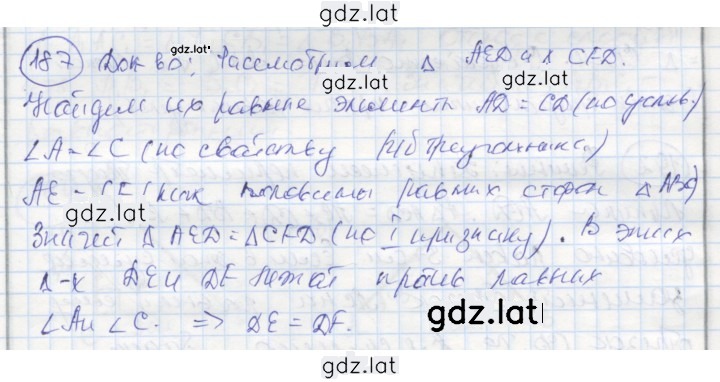 gdz.lat
187 Док-во: gdz.lat Рассмотрим Δ AED и Δ CFD.
Найдем их равные элементы AD = CD (по услов.)
∠A = ∠C (по свойству р/б треугольника.)
AE = CF (как половины равных сторон Δ ABC)
gdz.lat
Значит Δ AED = Δ CFD. (по I признаку). В этих
Δ-х DE и DF лежат против равных
∠A и ∠C. => DE = DF.
gdz.lat
gdz.lat